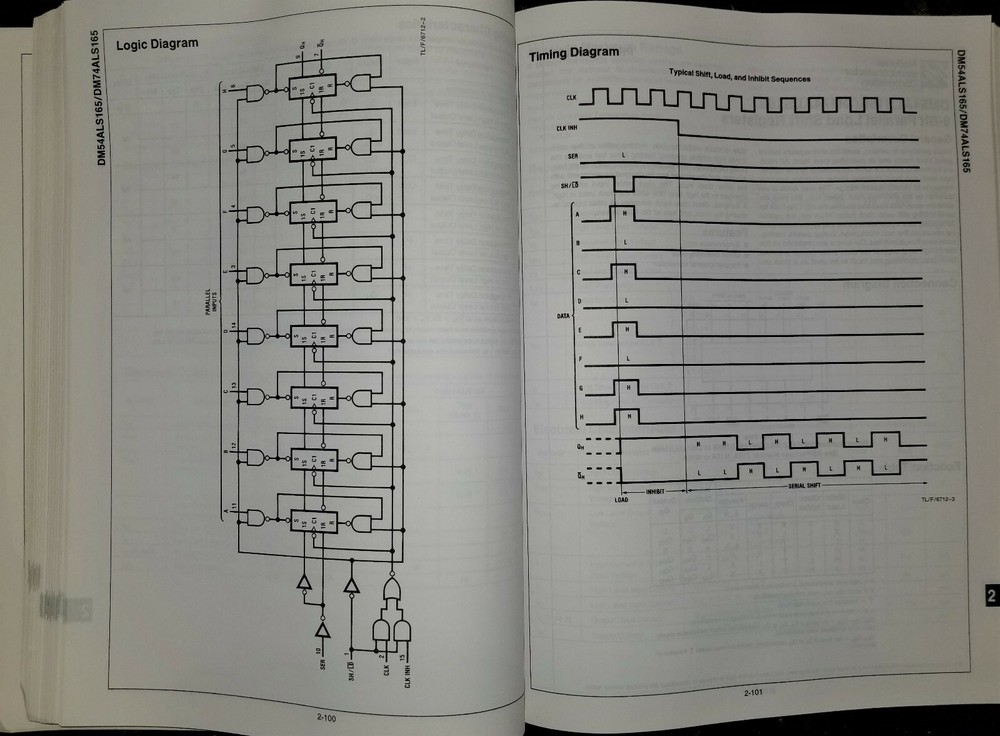 DM54ALS165/DM74ALS165
Logic Diagram
TL/F/6712-2
9 QH
7 Q̅H
PARALLEL INPUTS
H 6
G 5
F 4
E 3
D 14
C 13
B 12
A 11
S C1 R
1S 1R
S C1 R
1S 1R
S C1 R
1S 1R
S C1 R
1S 1R
S C1 R
1S 1R
S C1 R
1S 1R
S C1 R
1S 1R
S C1 R
1S 1R
10 SER
1 SH/L̅D̅
2 CLK
15 CLK INH
2-100
Timing Diagram
Typical Shift, Load, and Inhibit Sequences
CLK
CLK INH
SER L
SH/L̅D̅
DATA
A H
B L
C H
D L
E H
F L
G H
H H
QH H H L H L H L H
Q̅H L L H L H L H L
LOAD INHIBIT SERIAL SHIFT
TL/F/6712-3
DM54ALS165/DM74ALS165
2
2-101